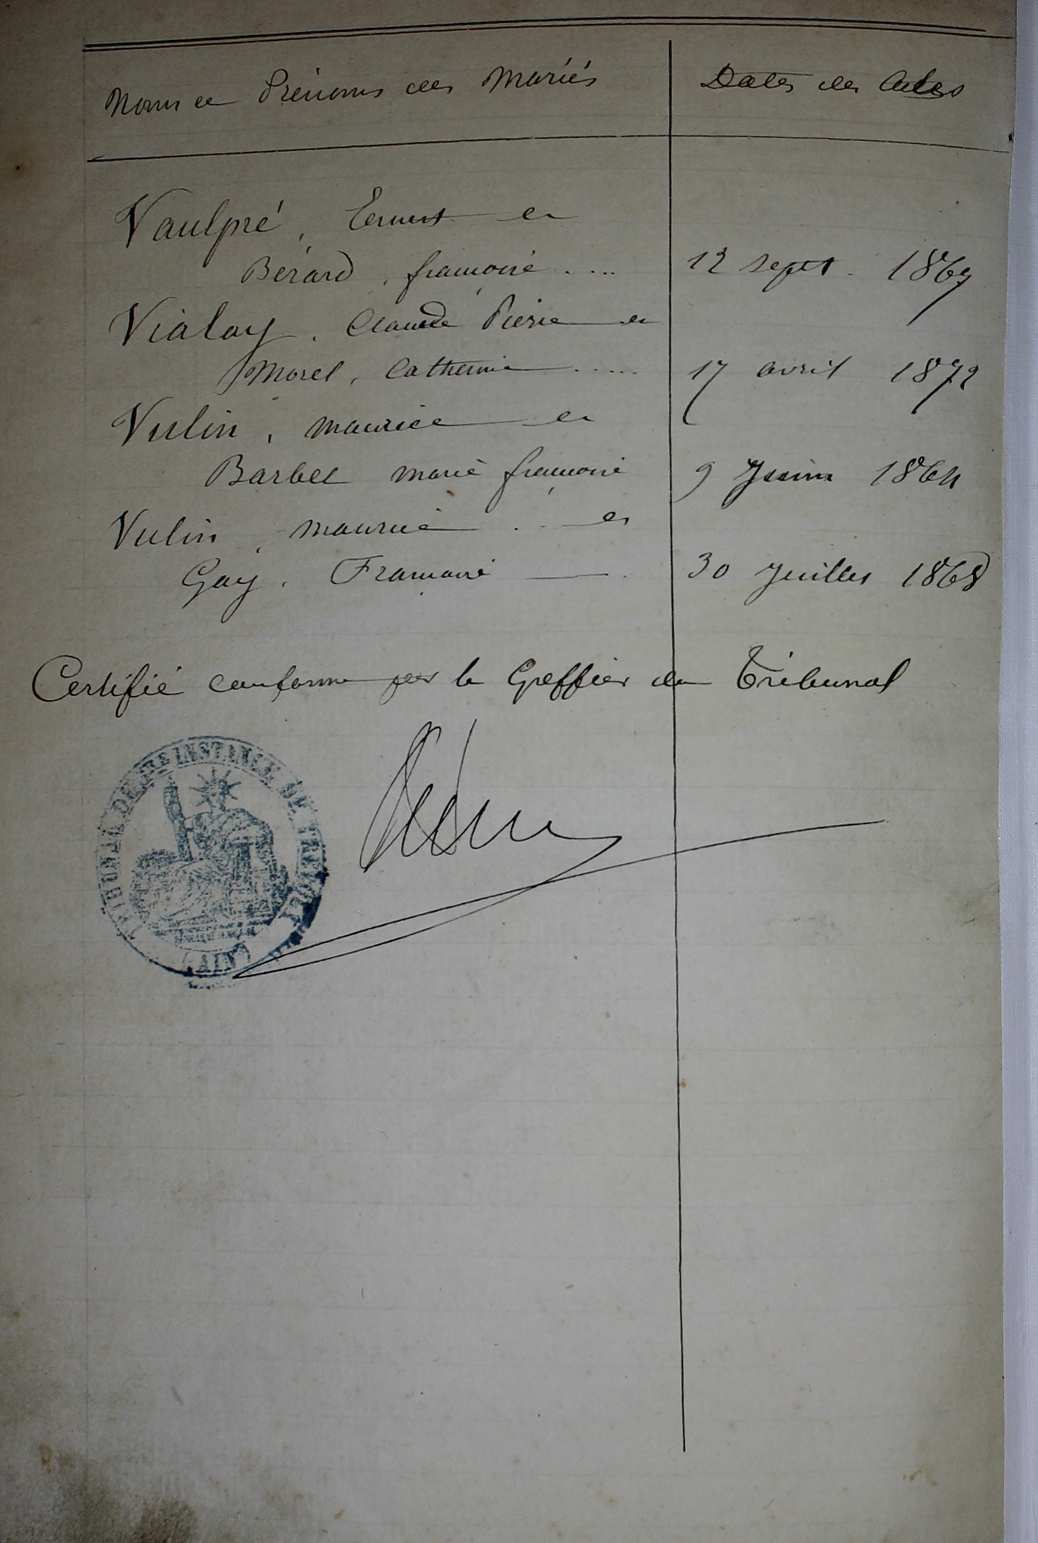 Noms et Prénoms des Mariés
Dates des Actes
Vaulpré, Ernest et
Bérard, françoise ..... 12 sept. 1869
Vialay, Claude Pierre et
Morel, Catherine ..... 17 avril 1872
Vulin, maurice et
Barbet marie françoise 9 Juin 1864
Vulin, maurice . .. et
Gay, Françoise — . 30 Juillet 1868
Certifié conforme par le Greffier du Tribunal
TRIBUNAL DE 1RE INSTANCE DE TREVOUX
(AIN)